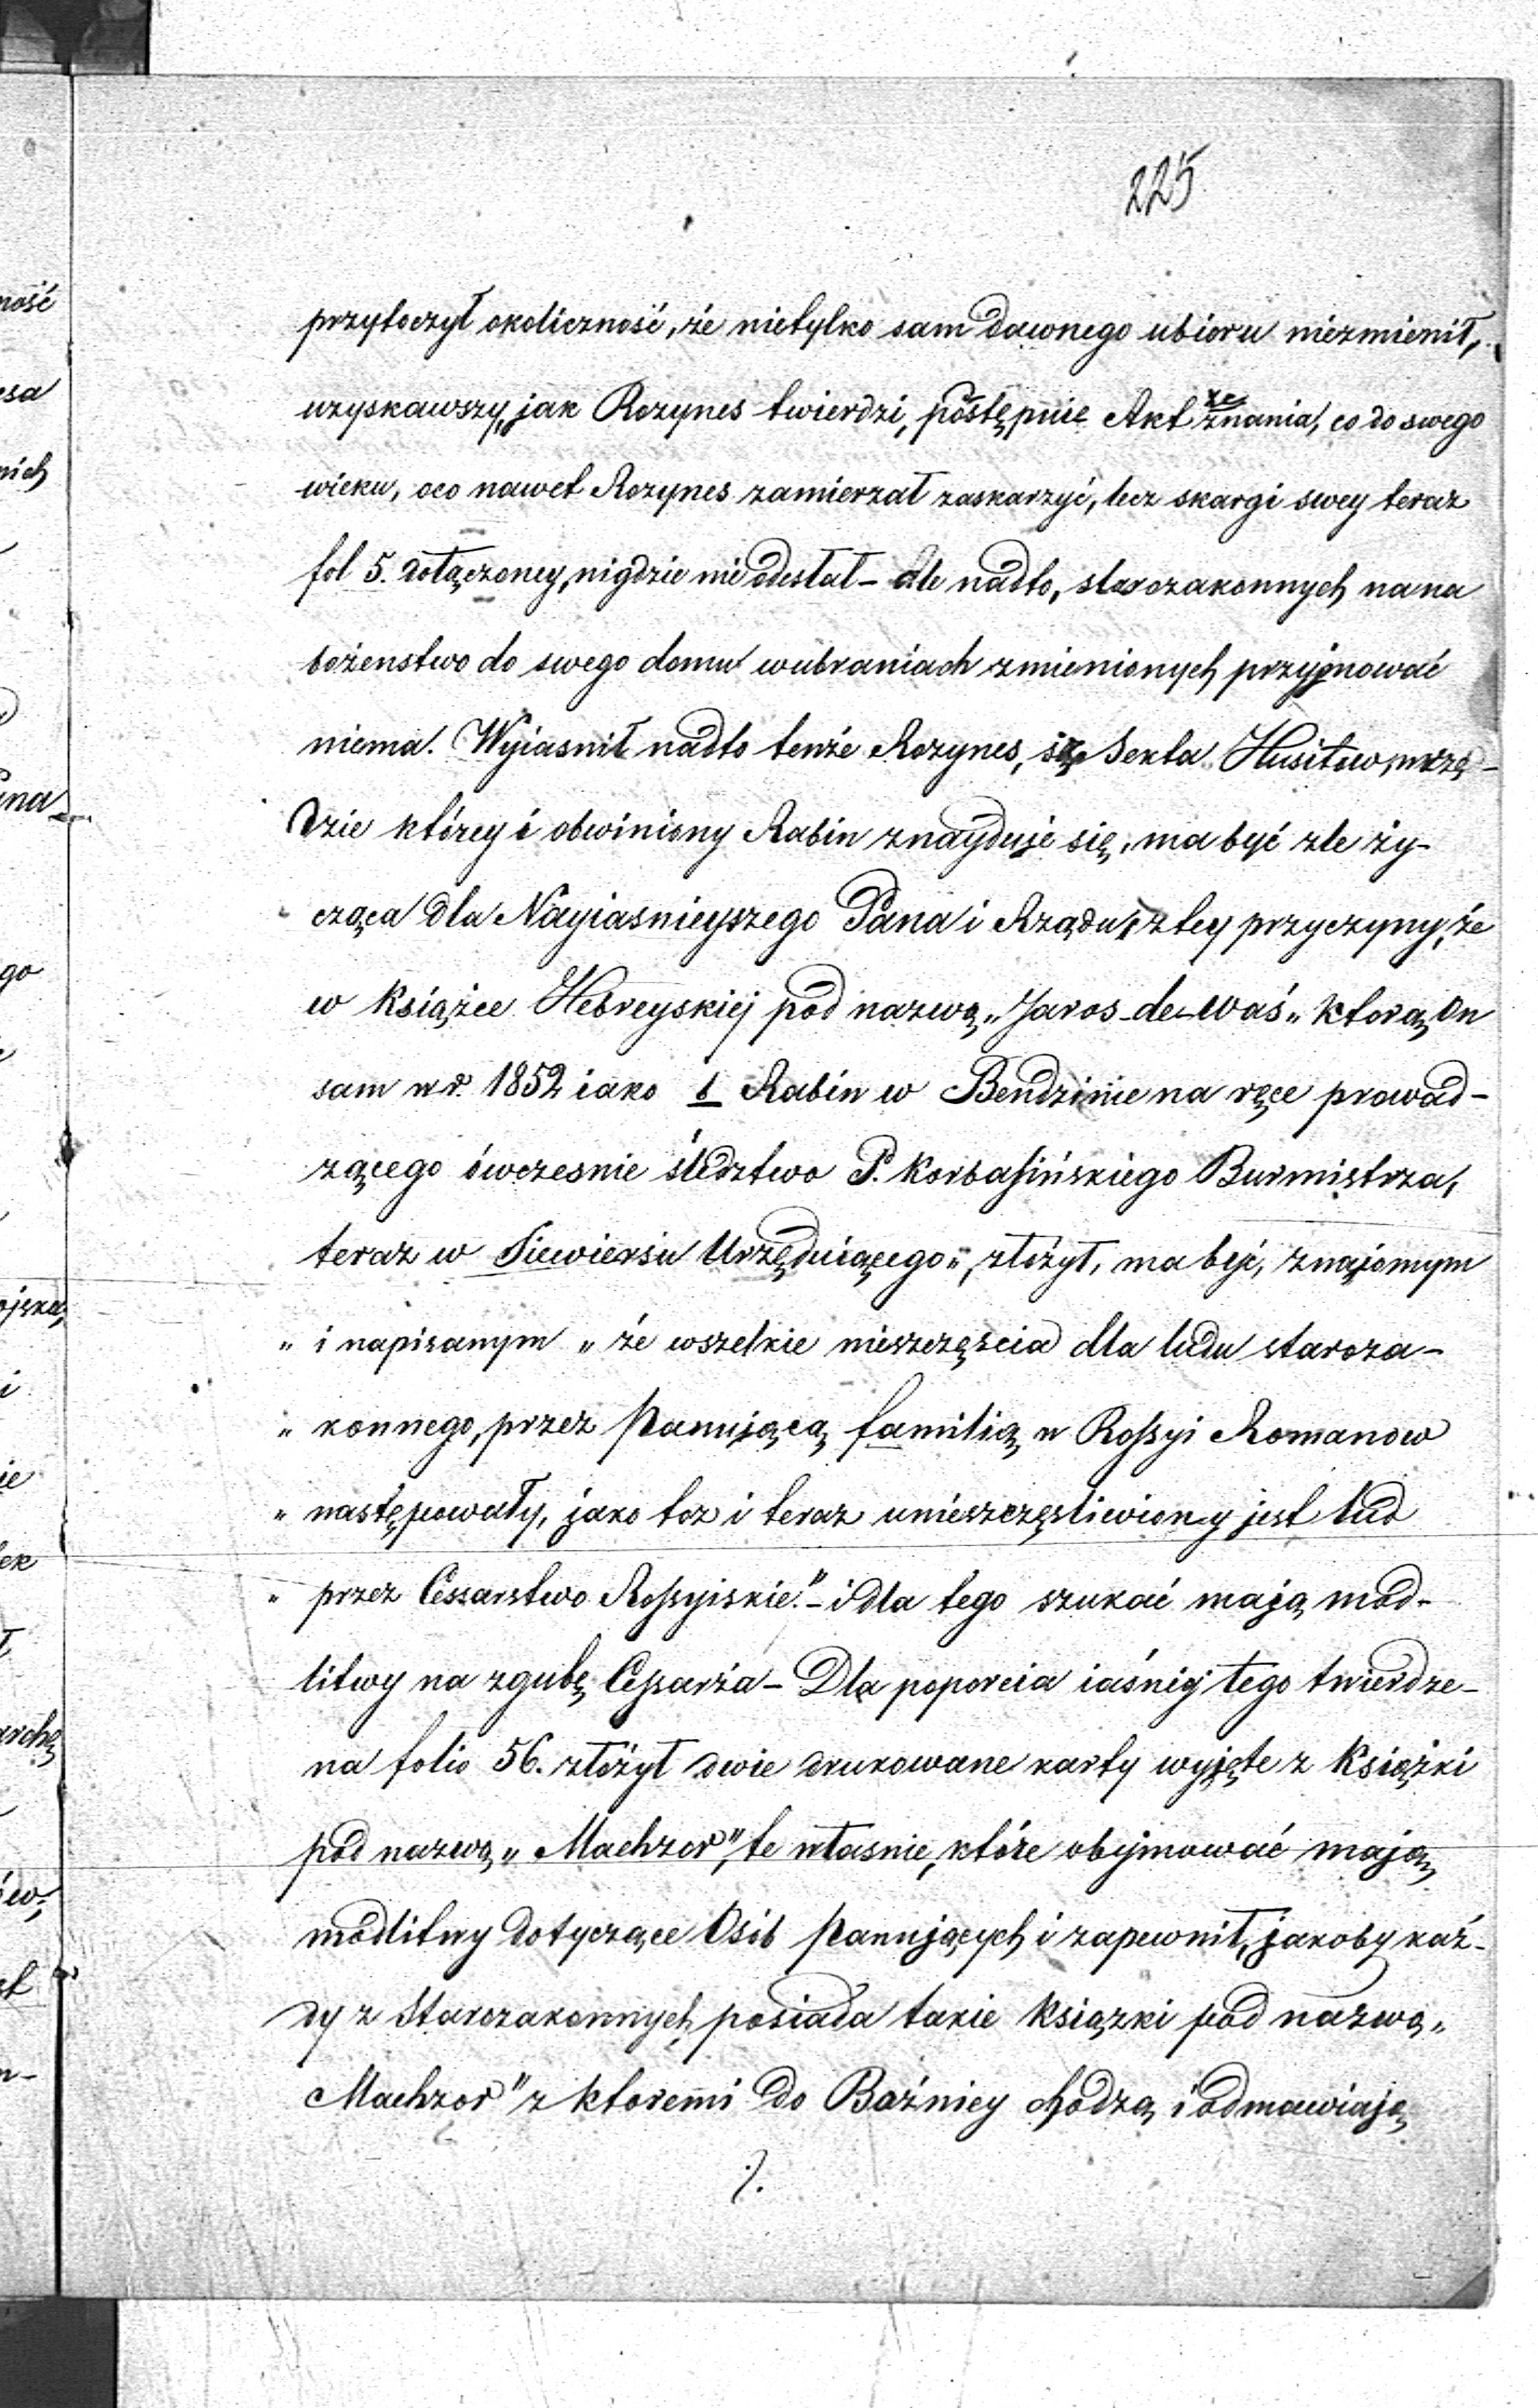 225
przytoczył okoliczność, że nietylko sam dawnego ubioru niezmienił,
uzyskawszy, jak Rozynes twierdzi, postępnie Akt zeznania, co do swego
wieku, oco nawet Rozynes zamierzał zaskarzyć, lecz skargi swey teraz
fol 5. dołączoney, nigdzie nie odesłał – ale nadto, starozakonnych na na
bożenstwo do swego domu w ubraniach zmienionych przyjmować
niema. Wyiasnił nadto tenże Rozynes, że Sekta Husitow, w rzę-
dzie którey i obwiniony Rabin znayduje się, ma być zle ży-
cząca dla Nayiasnieyszego Pana i Rządu, z tey przyczyny, że
w Książce Hebreyskiej pod nazwą „Jaros-de-waś„ ktorą On
sam w r. 1852 iako b Rabin w Bendzinie na ręce prowad-
zącego ówczesnie śledztwo P. Korbasińskiego Burmistrza,
teraz w Siewierzu Urzęduiącego„, złożył, ma być, znajomym
„ i napisanym „ że wszelkie nieszczęścia dla ludu staroza-
„ konnego, przez Panującą familią w Rossyi Romanow
„ następowały, jako toz i teraz unieszczęsliwiony jest lud
„ przez Cessarstwo Rossyiskie." – i dla tego szukać mają mod-
litwy na zgubę Cessarza – Dla poporcia iaśniej tego twierdze-
na folio 56. złożył dwie drukowane karty wyjęte z Książki
pod nazwą „Machzor", te własnie, które obejmować mają,
modlitwy dotyczące Osób Panujących i zapewnił, jakoby każ-
dy z Starozakonnych posiada takie książki pod nazwą „
Machzor" z ktoremi do Bożnicy chodzą i odmawiają
./.
ność
esa
nich
na
go
ojska,
i
ie
ek
archę
ów,